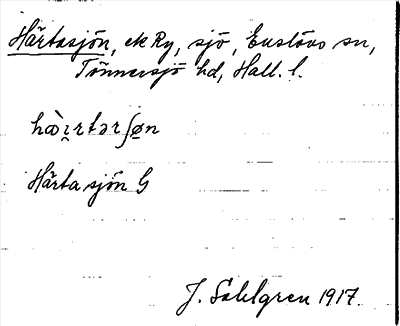 Härtasjön, ek Ry, sjö, Enslövs sn,
Tönnersjö hd, Hall. l.
hä̀ı̯rtərʃø̲n
Härta sjön G
J. Sahlgren 1917.